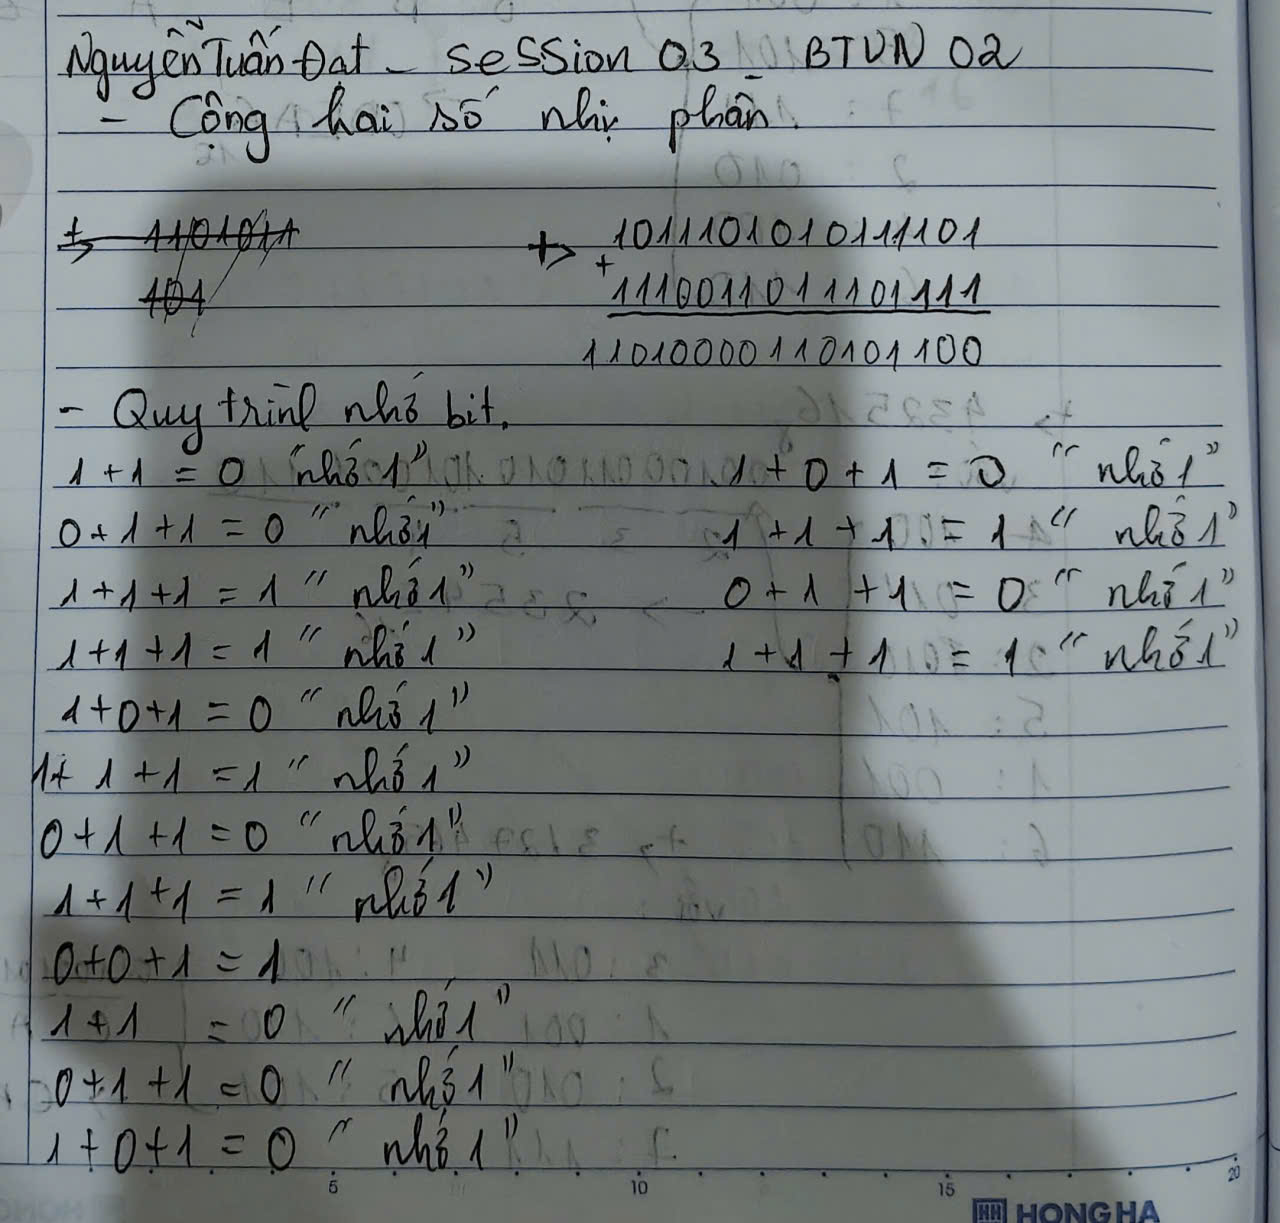 Nguyễn Tuấn Đạt - Session 03 - BTVN 02
- Cộng hai số nhị phân.
+> 1101011
101
+> 1011101010111101
+
1110011011101111
11010000110101100
- Quy trình nhớ bit.
1 + 1 = 0 "nhớ 1"
0 + 1 + 1 = 0 "nhớ 1"
1 + 1 + 1 = 1 "nhớ 1"
1 + 1 + 1 = 1 "nhớ 1"
1 + 0 + 1 = 0 "nhớ 1"
1 + 1 + 1 = 1 "nhớ 1"
0 + 1 + 1 = 0 "nhớ 1"
1 + 1 + 1 = 1 "nhớ 1"
0 + 0 + 1 = 1
1 + 1 = 0 "nhớ 1"
0 + 1 + 1 = 0 "nhớ 1"
1 + 0 + 1 = 0 "nhớ 1"
1 + 0 + 1 = 0 "nhớ 1"
1 + 1 + 1 = 1 "nhớ 1"
0 + 1 + 1 = 0 "nhớ 1"
1 + 1 + 1 = 1 "nhớ 1"
5 10 15 20
HH HONG HA